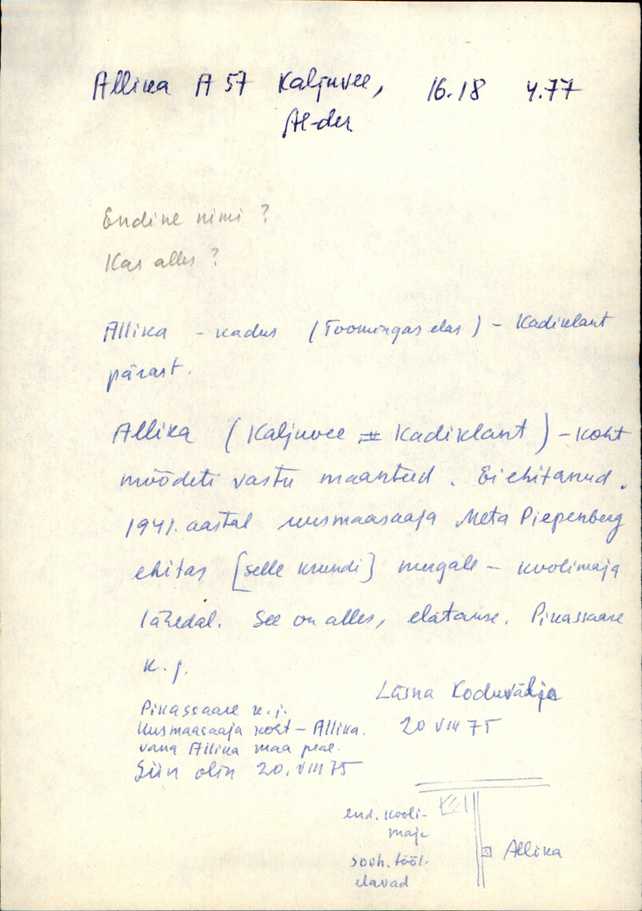 Allika A 57 Kaljuvee, 16.18 4.77
Al-der
Endine nimi ?
Kas alles ?
Allika - kadus (Toomingas elas) - Kadiklant
pärast.
Allika (Kaljuvee = Kadiklant) - koht
mõõdeti vastu maanteed. Ei ehitanud.
1941. aastal uusmaasaaja Meta Piepenberg
ehitas [selle krundi] nurgale - koolimaja
lähedal. See on alles, elatakse. Pikassaare
k.j.
Läsna Koduvälja
20 VIII 75
Pikassaare k.j.
Uusmaasaaja koht - Allika.
vana Allika maa peal.
Siin olin 20. VIII 75
end. kooli-
maja
Allika
sovh. tööl.
elavad